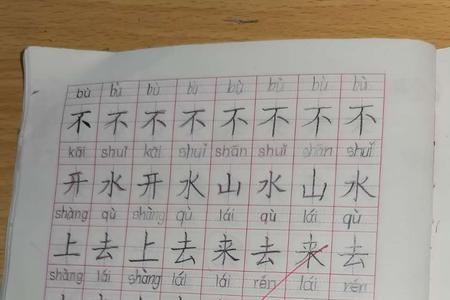 bù bù bù bù bù bù bù bù
不 不 不 不 不 不 不 不
kāi shuǐ kāi shuǐ shān shuǐ shān shuǐ
开 水 开 水 山 水 山 水
shàng qù shàng qù lái qù lái qù
上 去 上 去 来 去 来 去
shàng lái shàng lái lái rén lái rén